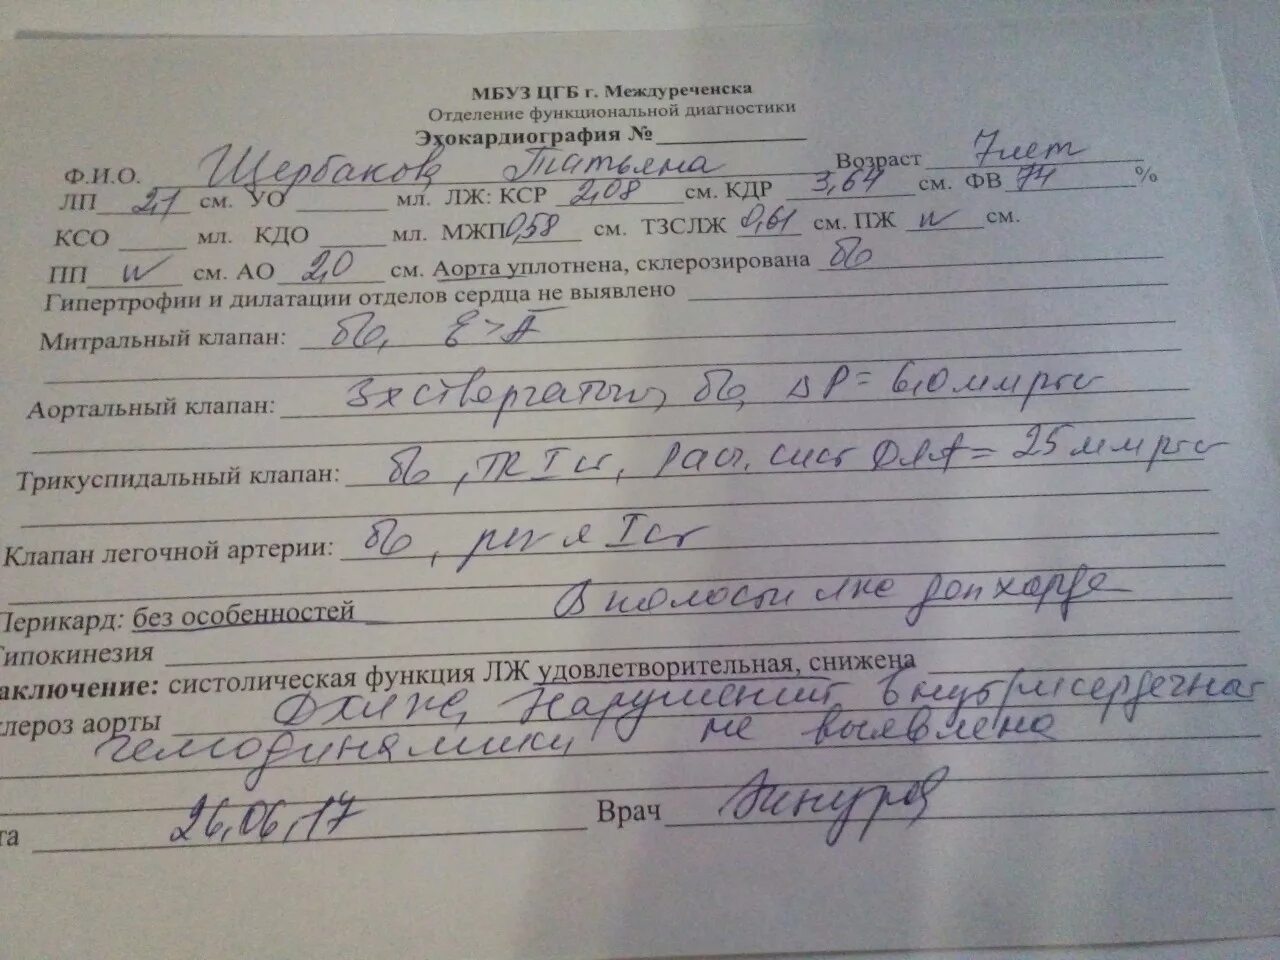 МБУЗ ЦГБ г. Междуреченска
Отделение функциональной диагностики
Эхокардиография № ________
Ф.И.О. Щербакова Татьяна Возраст 7 лет
ЛП 2,1 см. УО ____ мл. ЛЖ: КСР 2,08 см. КДР 3,64 см. ФВ 74 %
КСО ____ мл. КДО ____ мл. МЖП 0,58 см. ТЗСЛЖ 0,61 см. ПЖ N см.
ПП N см. АО 2,0 см. Аорта уплотнена, склерозирована б/о
Гипертрофии и дилатации отделов сердца не выявлено
Митральный клапан: б/о, E>A
Аортальный клапан: 3х створчатый, б/о, ΔP = 6,0 мм рт ст
Трикуспидальный клапан: б/о, ТR I ст, расч. сист ДЛА = 25 мм рт ст
Клапан легочной артерии: б/о, рег я I ст
Перикард: без особенностей В полости лж доп хорда
Гипокинезия
аключение: систолическая функция ЛЖ удовлетворительная, снижена
клероз аорты ДХЛЖ, Нарушений внутрисердечная
гемодинамики не выявлена
та 26.06.17 Врач